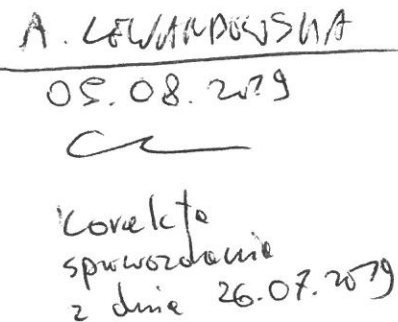 A. LEWANDOWSKA
05.08.2019
korekta
sprawozdania
z dnia 26.07.2019